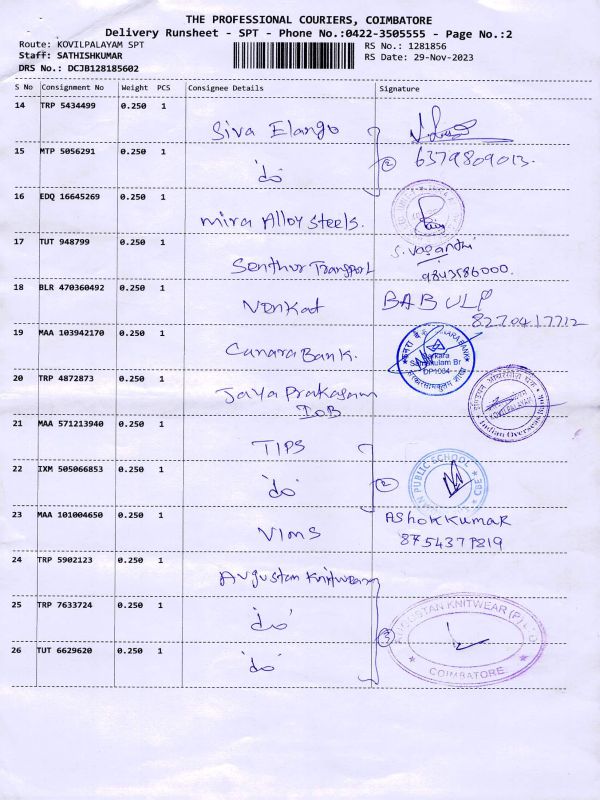 THE PROFESSIONAL COURIERS, COIMBATORE
Delivery Runsheet - SPT - Phone No.:0422-3505555 - Page No.:2
Route: KOVILPALAYAM SPT
RS No.: 1281856
Staff: SATHISHKUMAR
RS Date: 29-Nov-2023
DRS No.: DCJB128185602
S No Consignment No Weight PCS Consignee Details Signature
14 TRP 5434499 0.250 1
Siva Elango
15 MTP 5056291 0.250 1
2 6379809013.
'do'
16 EDQ 16645269 0.250 1
mira Alloy Steels.
17 TUT 948799 0.250 1
S. Vasanthi
Senthur Transport 9843586000.
18 BLR 470360492 0.250 1
Venkat BABU LP
8270417712
19 MAA 103942170 0.250 1
Canara Bank.
DP1004
20 TRP 4872873 0.250 1
Jaya Prakasam
IOB
KOVILPALAYAM
Indian Overseas Bank
21 MAA 571213940 0.250 1
TIPS
22 IXM 505066853 0.250 1
'do' 2
PUBLIC SCHOOL CBE
23 MAA 101004650 0.250 1
AShokkumar
Vims 8754377819
24 TRP 5902123 0.250 1
Augustan Knitwear
25 TRP 7633724 0.250 1
'do'
3 AUGUSTAN KNITWEAR (P) LTD
26 TUT 6629620 0.250 1
'do'
COIMBATORE